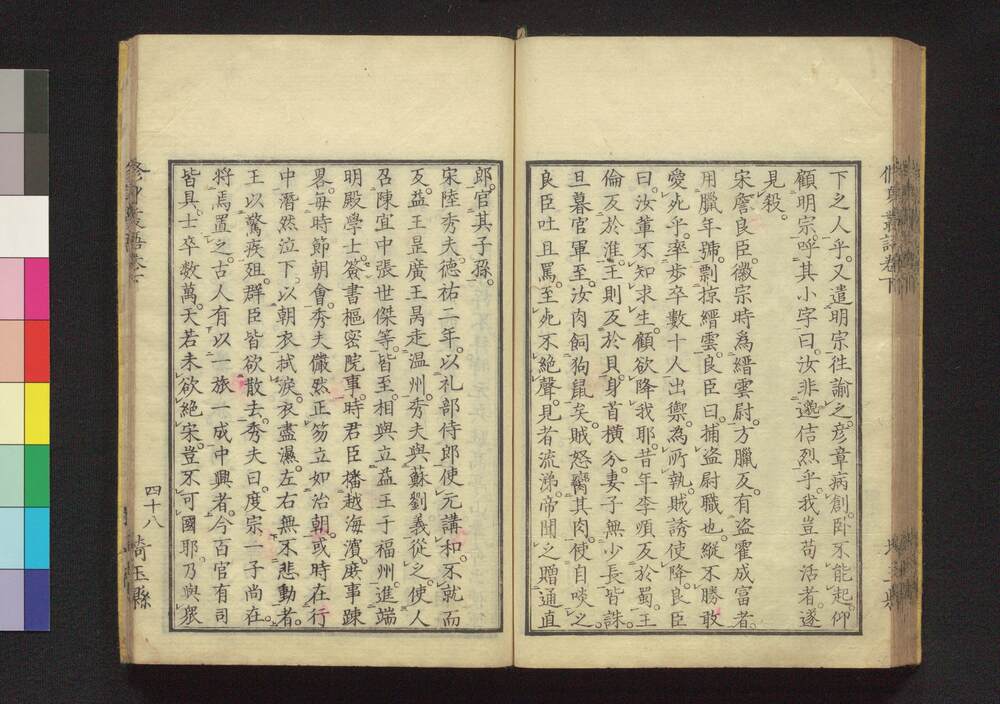 下之人乎。又遣明宗徃諭之。彦章病創。臥不能起。仰
顧明宗。呼其小字曰。汝非邈佶烈乎。我豈苟活者。遂
見殺。
宋詹良臣。徽宗時為縉雲尉。方臘反。有盗霍成富者。
用臘年號。剽掠縉雲。良臣曰。捕盗尉職也。縱不勝。敢
愛死乎。率步卒數十人出禦。為所執。賊誘使降。良臣
曰。汝輩不知求生。顧欲降我耶。昔年李順反於蜀。王
倫反於淮。王則反於貝。身首橫分。妻子無少長皆誅。
旦暮官軍至。汝肉飼狗鼠矣。賊怒。臠其肉。使自啖之。
良臣吐且罵。至死不絶聲。見者流涕。帝聞之。贈通直
郎。官其子孫。
宋陸秀夫。德祐二年。以礼部侍郎。使元講和。不就而
反。益王昰廣王昺走温州。秀夫與蘇劉義從之。使人
召陳宜中張世傑等。皆至。相與立益王于福州。進端
明殿學士。簽書樞密院事。時君臣播越海濱。庶事踈
畧。每時節朝會。秀夫儼然正笏立如治朝。或時在行
中。潸然泣下。以朝衣拭涙。衣盡濕。左右無不悲動者。
王以驚疾殂。群臣皆欲散去。秀夫曰。度宗一子尚在。
將焉置之。古人有以一旅一成中興者。今百官有司
皆具。士卒數萬。天若未欲絶宋。豈不可國耶。乃與衆
四十八
埼玉縣